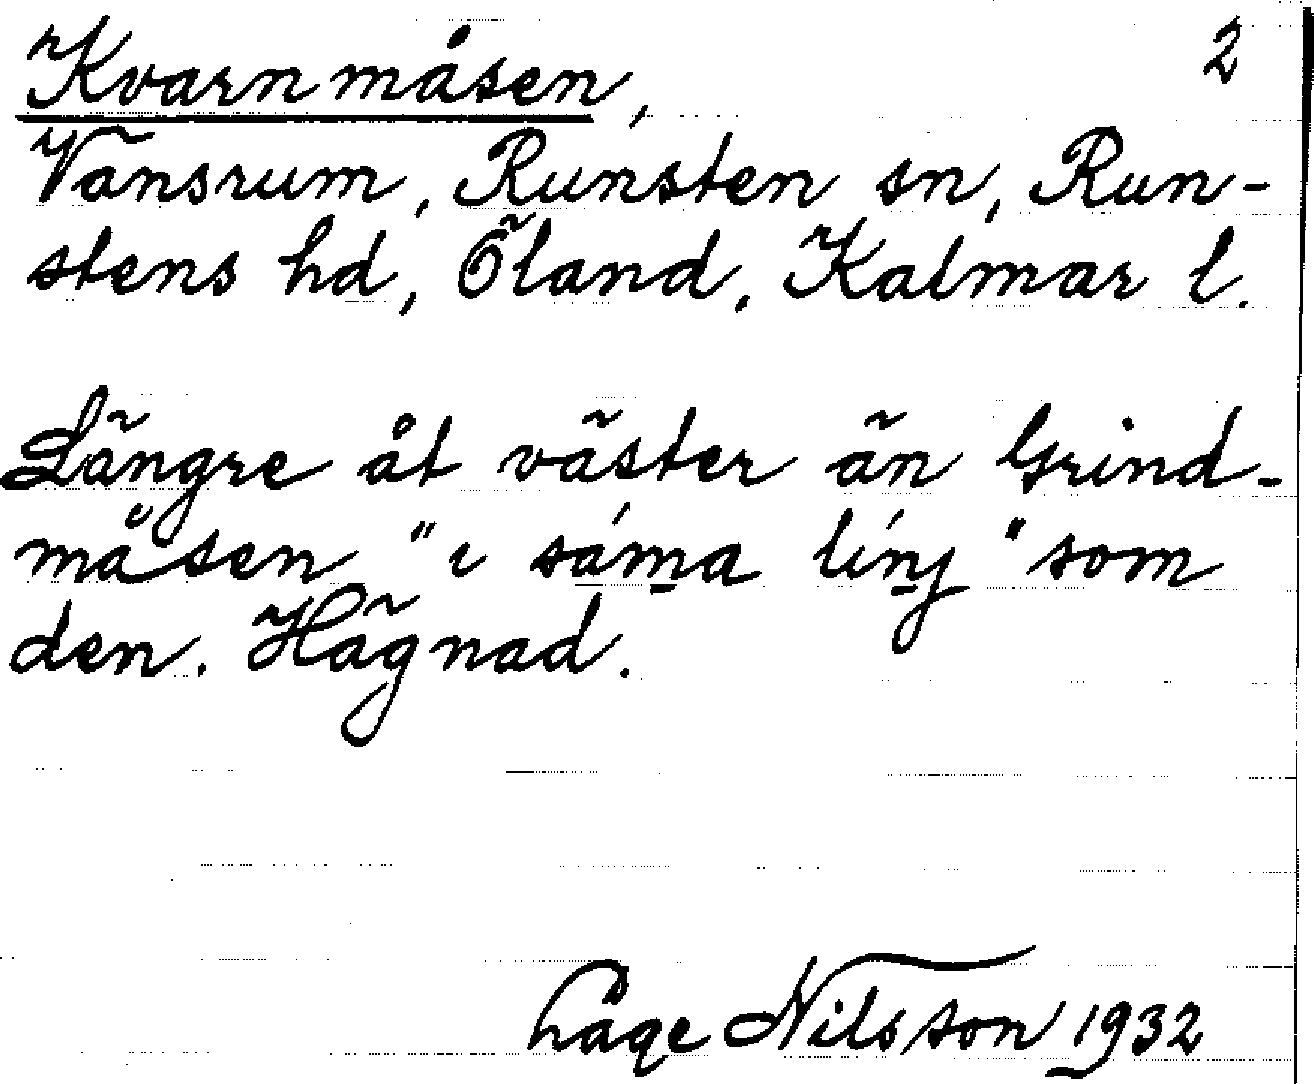 Kvarnmåsen, 2
Vänsrum, Runsten sn, Run-
stens hd, Öland, Kalmar l.
Längre åt väster än Grind-
måsen "i sáma línj" som
den. Hägnad.
Låge Nilsson 1932